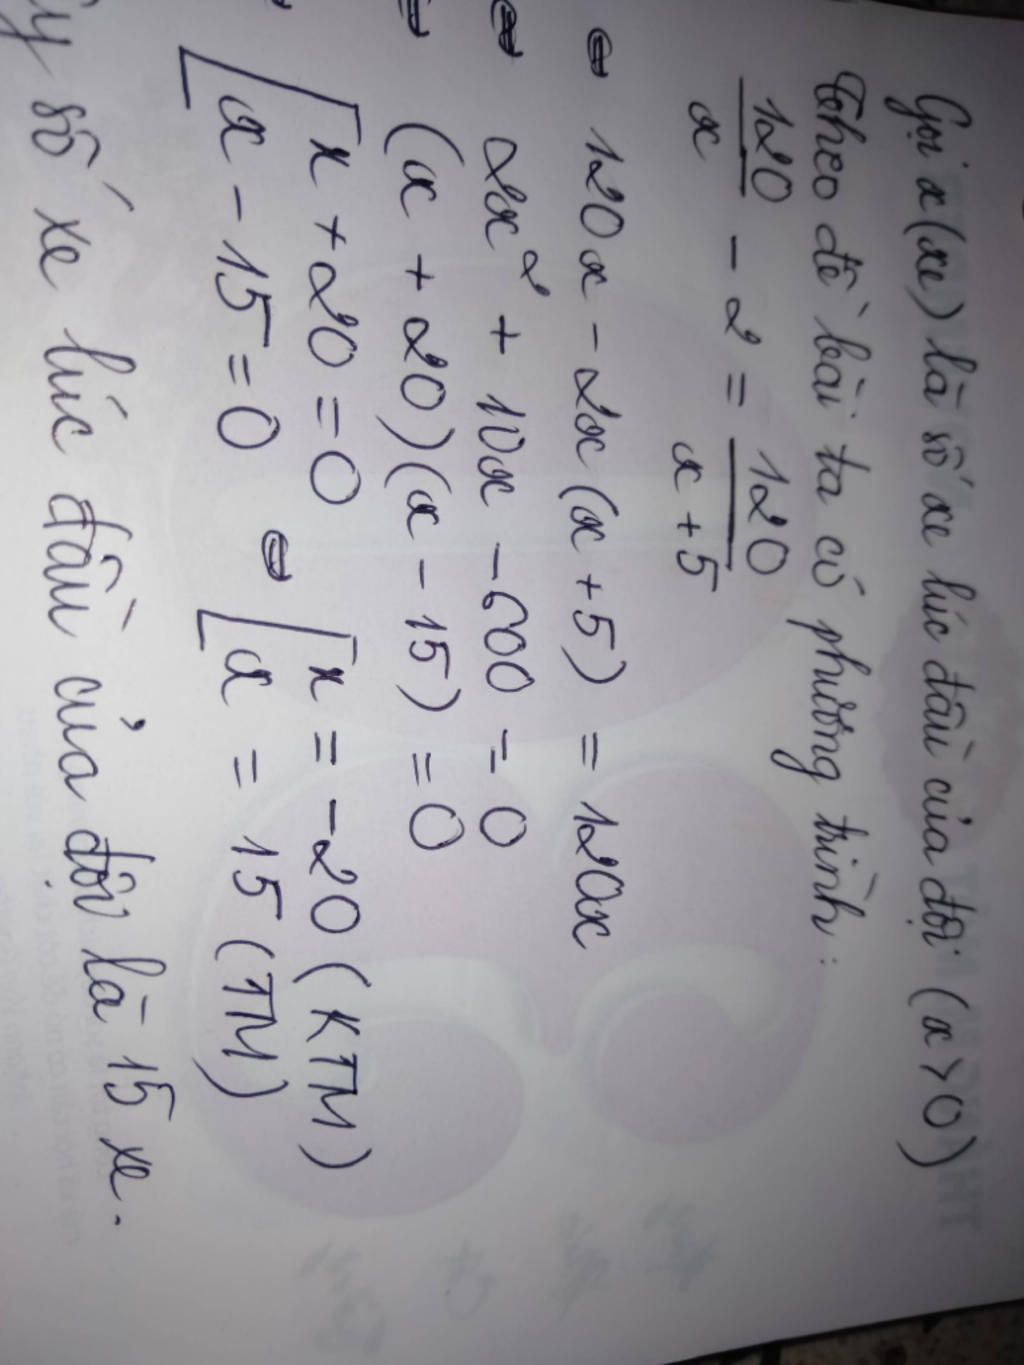 Gọi x (xe) là số xe lúc đầu của đội (x > 0)
Theo đề bài ta có phương trình:
120/x - 2 = 120/(x + 5)
⇔ 120x - 2x(x + 5) = 120x
⇔ 2x² + 10x - 600 = 0
⇔ (x + 20)(x - 15) = 0
[x + 20 = 0 ⇔ [x = -20 (KTM)
x - 15 = 0 x = 15 (TM)
số xe lúc đầu của đội là 15 xe.